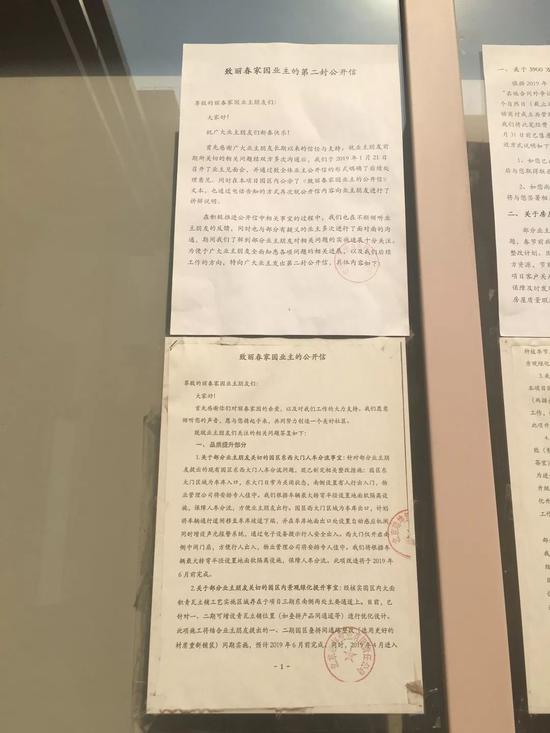 致丽春家园业主的第二封公开信
尊敬的丽春家园业主朋友们：
大家好！
祝广大业主朋友们新春快乐！
首先感谢广大业主朋友长期以来的信任与支持，就业主朋友前
期所关切的相关问题经双方多次沟通后，我们于 2019 年 1 月 21 日
召开了业主见面会，并通过致全体业主公开信的形式明确了后续处
理意见。同时在本项目园区内公示了《致丽春家园业主的公开信》
文本，也通过电话告知的方式再次就公开信内容向业主朋友进行了
讲解说明。
在积极推进公开信中相关事宜的过程中，我们也在不断倾听业
主朋友的反馈，同时也与部分有疑义的业主多次进行了面对面的沟
通，期间我们了解到部分业主朋友对相关问题的实施进展十分关注。
为便于广大业主全面知悉各项问题的相关进展，以及我们后续
工作的方向，特向广大业主发出第二封公开信，具体内容如下：
致丽春家园业主的公开信
尊敬的丽春家园业主朋友们：
大家好！
首先感谢你们对丽春家园的垂爱，以及对我们工作的大力支持。我们愿意
倾听您的声音，愿与您携起手来，共同努力创造一个美好社区。
现就业主朋友们关注的相关问题答复如下：
一、品质提升部分
1.关于部分业主朋友关切的园区东西大门人车分流事宜：针对部分业主朋
友提出的现有园区东西大门人车分流问题，现已制定相关整改措施：园区东
大门区域为车库入口，东大门日常为关闭状态，南侧设置有人行出入门，物
业管理公司将安排专人值守。我们根据车辆最大转弯半径设置地面软隔离设
施，保障人车分流，方便业主友出行。园区西大门区域为车库出口，计划
将车辆通行道闸移至车库坡道下端，并在车库地面出口处设置自动感应机闸
同时增设声光报警系统，通过电子设备提示行人安全出入。西大门仅开启南
侧中间门扇，方便行人出入，物业管理公司将安排专人值守。我们将根据车
辆最大转弯半径设置地面软隔离设施，保障人车分流。此项改造将于 2019 年
6 月前完成。
2.关于部分业主朋友关切的园区内景观绿化提升事宜：经核实园区内大面
积青瓦立铺工艺实施区域存在于项目三期东南侧两处主要通道上。目前，已
针对一、二期可增设青瓦立铺位置（如叠拼产品间通道等）进行优化设计。
此项施工将结合业主朋友提出的一、二期园区叠拼间通道整改（选用更好的
材质重新铺装）同期实施，预计 2019 年 6 月前完成。同时，2019 年 4 月进入
- 1 -
一、关于 5900 万
依据 2019 年
个自然日（截止
我们将此笔经费
月 31 日前已售房
效方式说明如下
1、如您已
后与您取得联
2、如您尚
将与您签署相
二、关于房
部分业主
题，春节前我
整改计划，目
方资源，节
项目客户关
保障及时发
房屋质量现